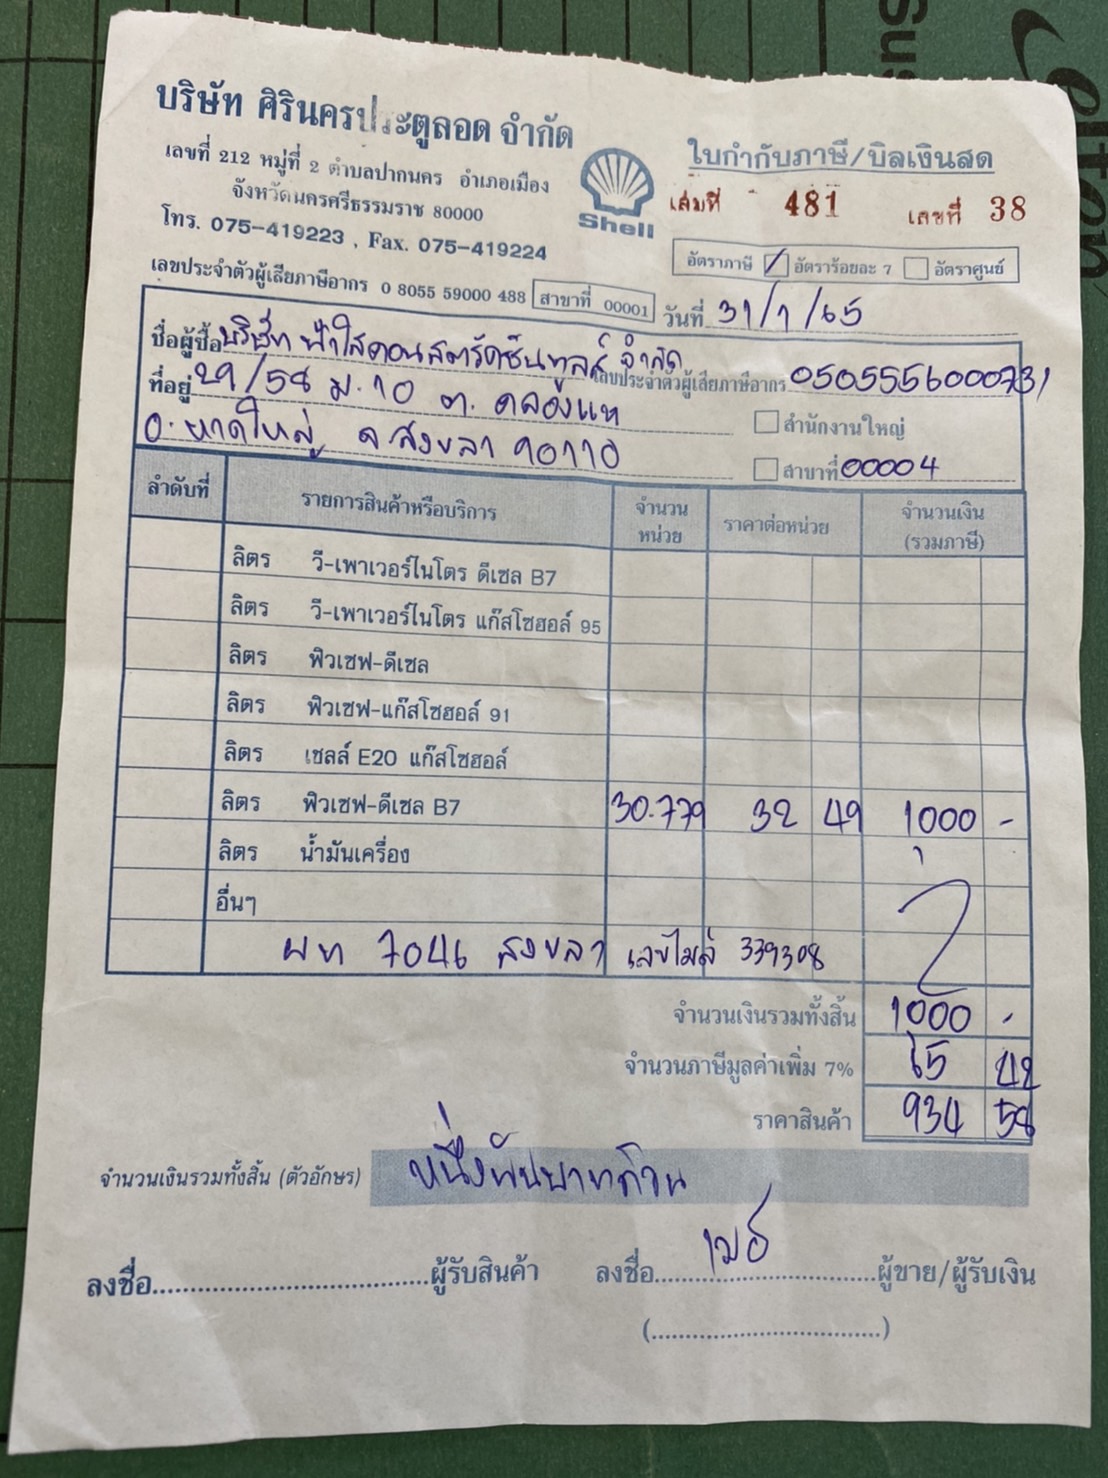 บริษัท ศิรินครประตูลอด จำกัด
เลขที่ 212 หมู่ที่ 2 ตำบลปากนคร อำเภอเมือง
จังหวัดนครศรีธรรมราช 80000
โทร. 075-419223 , Fax. 075-419224
เลขประจำตัวผู้เสียภาษีอากร 0 8055 59000 488 สาขาที่ 00001
Shell
ใบกำกับภาษี/บิลเงินสด
เล่มที่ 481 เลขที่ 38
อัตราภาษี / อัตราร้อยละ 7 อัตราศูนย์
วันที่ 31/1/65
ชื่อผู้ซื้อ บริษัท ฟ้าใสคอนสตรัคชั่นทูลส์ จำกัด เลขประจำตัวผู้เสียภาษีอากร 0505556000731
ที่อยู่ 29/58 ม.10 ต. คลองแห สำนักงานใหญ่
อ. หาดใหญ่ จ.สงขลา 90110 สาขาที่ 00004
ลำดับที่ รายการสินค้าหรือบริการ จำนวนหน่วย ราคาต่อหน่วย จำนวนเงิน (รวมภาษี)
ลิตร วี-เพาเวอร์ไนโตร ดีเซล B7
ลิตร วี-เพาเวอร์ไนโตร แก๊สโซฮอล์ 95
ลิตร ฟิวเซฟ-ดีเซล
ลิตร ฟิวเซฟ-แก๊สโซฮอล์ 91
ลิตร เชลล์ E20 แก๊สโซฮอล์
ลิตร ฟิวเซฟ-ดีเซล B7 30.779 32 49 1000 -
ลิตร น้ำมันเครื่อง
อื่นๆ
ผท 7046 สงขลา เลขไมล์ 339308
จำนวนเงินรวมทั้งสิ้น 1000 -
จำนวนภาษีมูลค่าเพิ่ม 7% 65 42
ราคาสินค้า 934 58
จำนวนเงินรวมทั้งสิ้น (ตัวอักษร) หนึ่งพันบาทถ้วน
ลงชื่อ..............................ผู้รับสินค้า ลงชื่อ..............................ผู้ขาย/ผู้รับเงิน
(..............................)